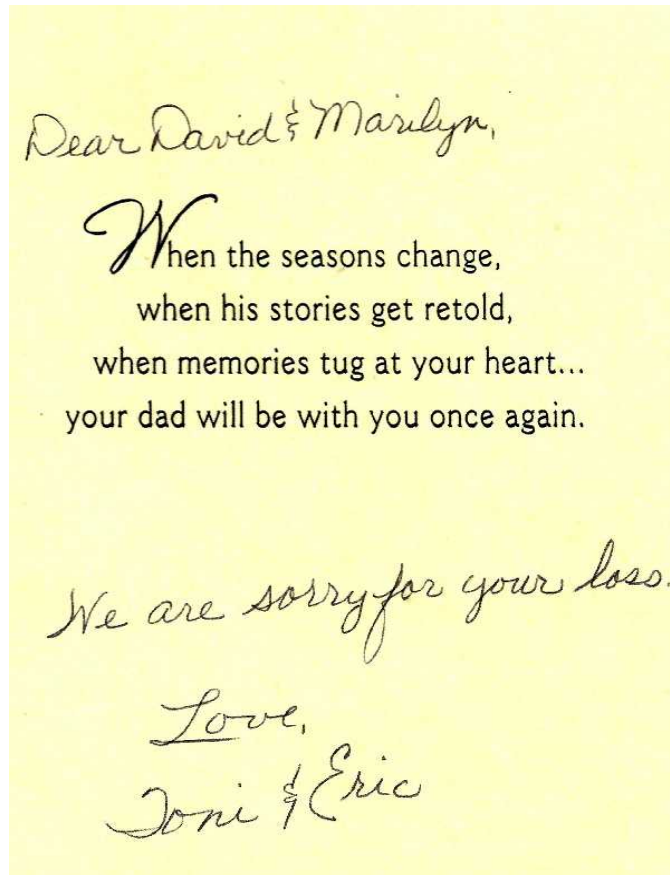 Dear David & Marilyn,
When the seasons change,
when his stories get retold,
when memories tug at your heart...
your dad will be with you once again.
We are sorry for your loss.
Love,
Toni & Eric